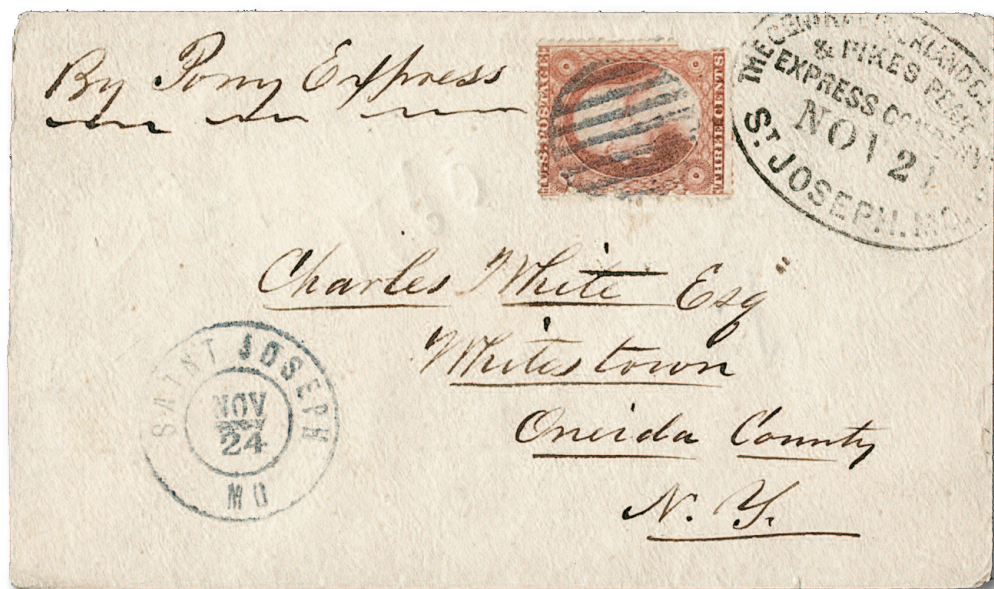 By Pony Express
U.S. POSTAGE
THREE CENTS
& PIKES PEAK
EXPRESS COMPANY
NOV 21
ST. JOSEPH, MO.
Charles White Esq
Whitestown
Oneida County
N. Y.
SAINT JOSEPH
NOV
24
MO